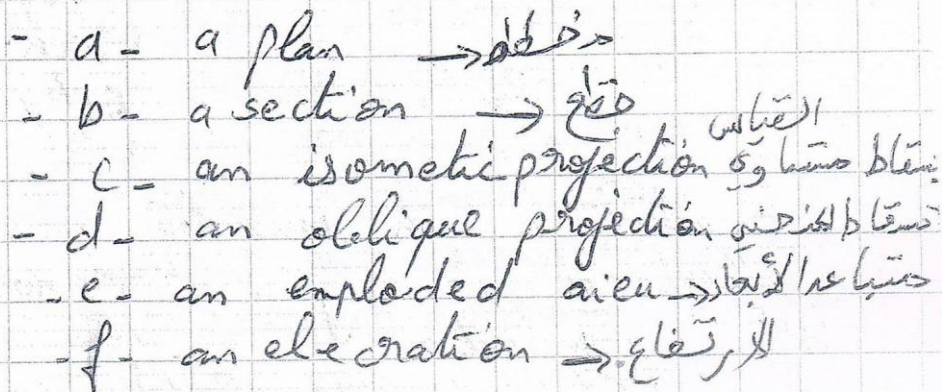 - a - a plan → مخطط
- b - a section → قطع
- c - an isometic projection إسقاط متساوي القياس
- d - an oblique projection إسقاط
- e - an emploded aieu → متباعد الأبعاد
- f - an elecration → الارتفاع